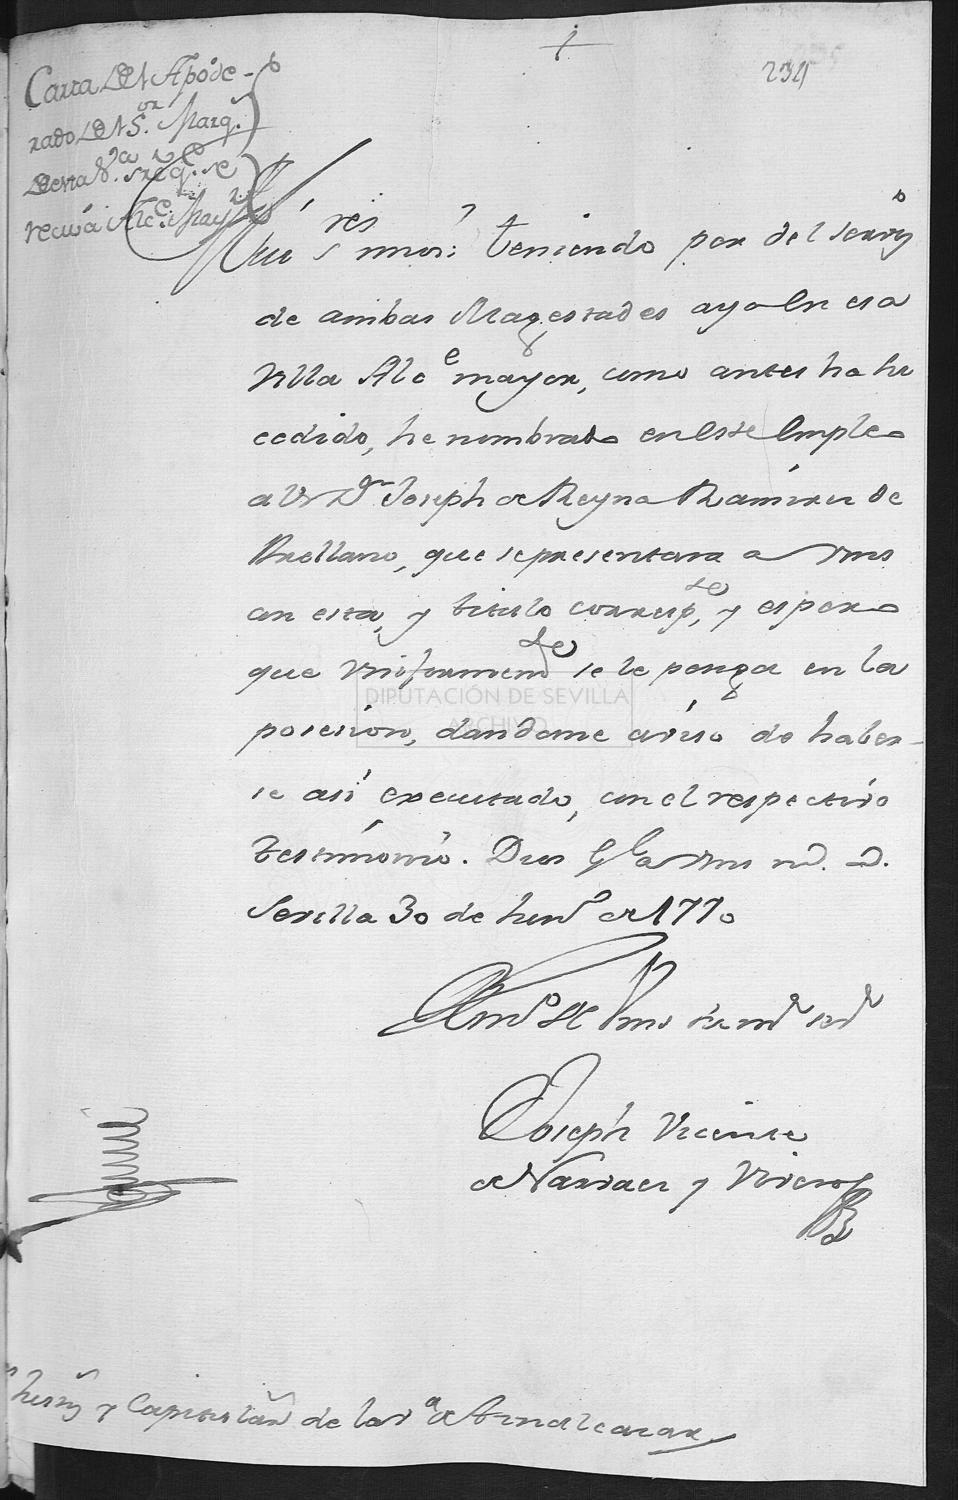 234
Carta del Apode-
rado del S.or Marq.s
de esta V.a pa q.e se
reciva Alc.e May.r
Mui S.res mios: teniendo por del servi.o
de ambas Magestades aya en esa
Villa Alc.e mayor, como antes ha su
cedido, he nombrado en este Empleo
a Dn Joseph de Reyna Ramirez de
Arellano, que representara a Vms
con esta, y titulo corresp.te, y espero
que uniformem.te se le ponga en la
posesion, dandome aviso de haber-
se asi executado, con el respectivo
testimonio. Dios g.e a Vms m.s a.s
Sevilla 30 de hen.o de 1770
Joseph Vicente
de Narvaez y Vivero
DIPUTACIÓN DE SEVILLA
ARCHIVO
y Capitulares de la V.a de Aznalcazar